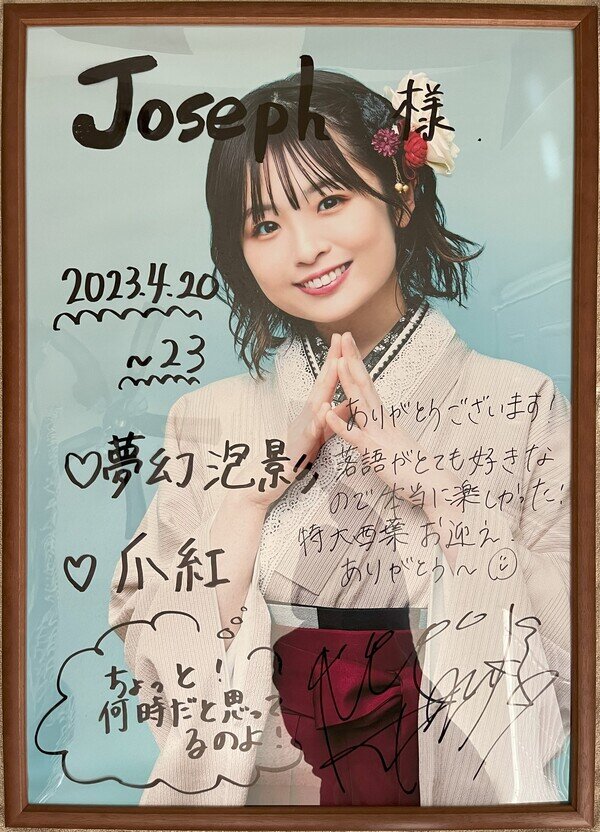 Joseph 様
2023.4.20
~23
♡夢幻泡影
♡爪紅
ありがとうございます!
落語がとても好きな
ので本当に楽しかった!
特大西葉お迎え!
ありがとう〜
ちょっと!
何時だと思って
るのよ!